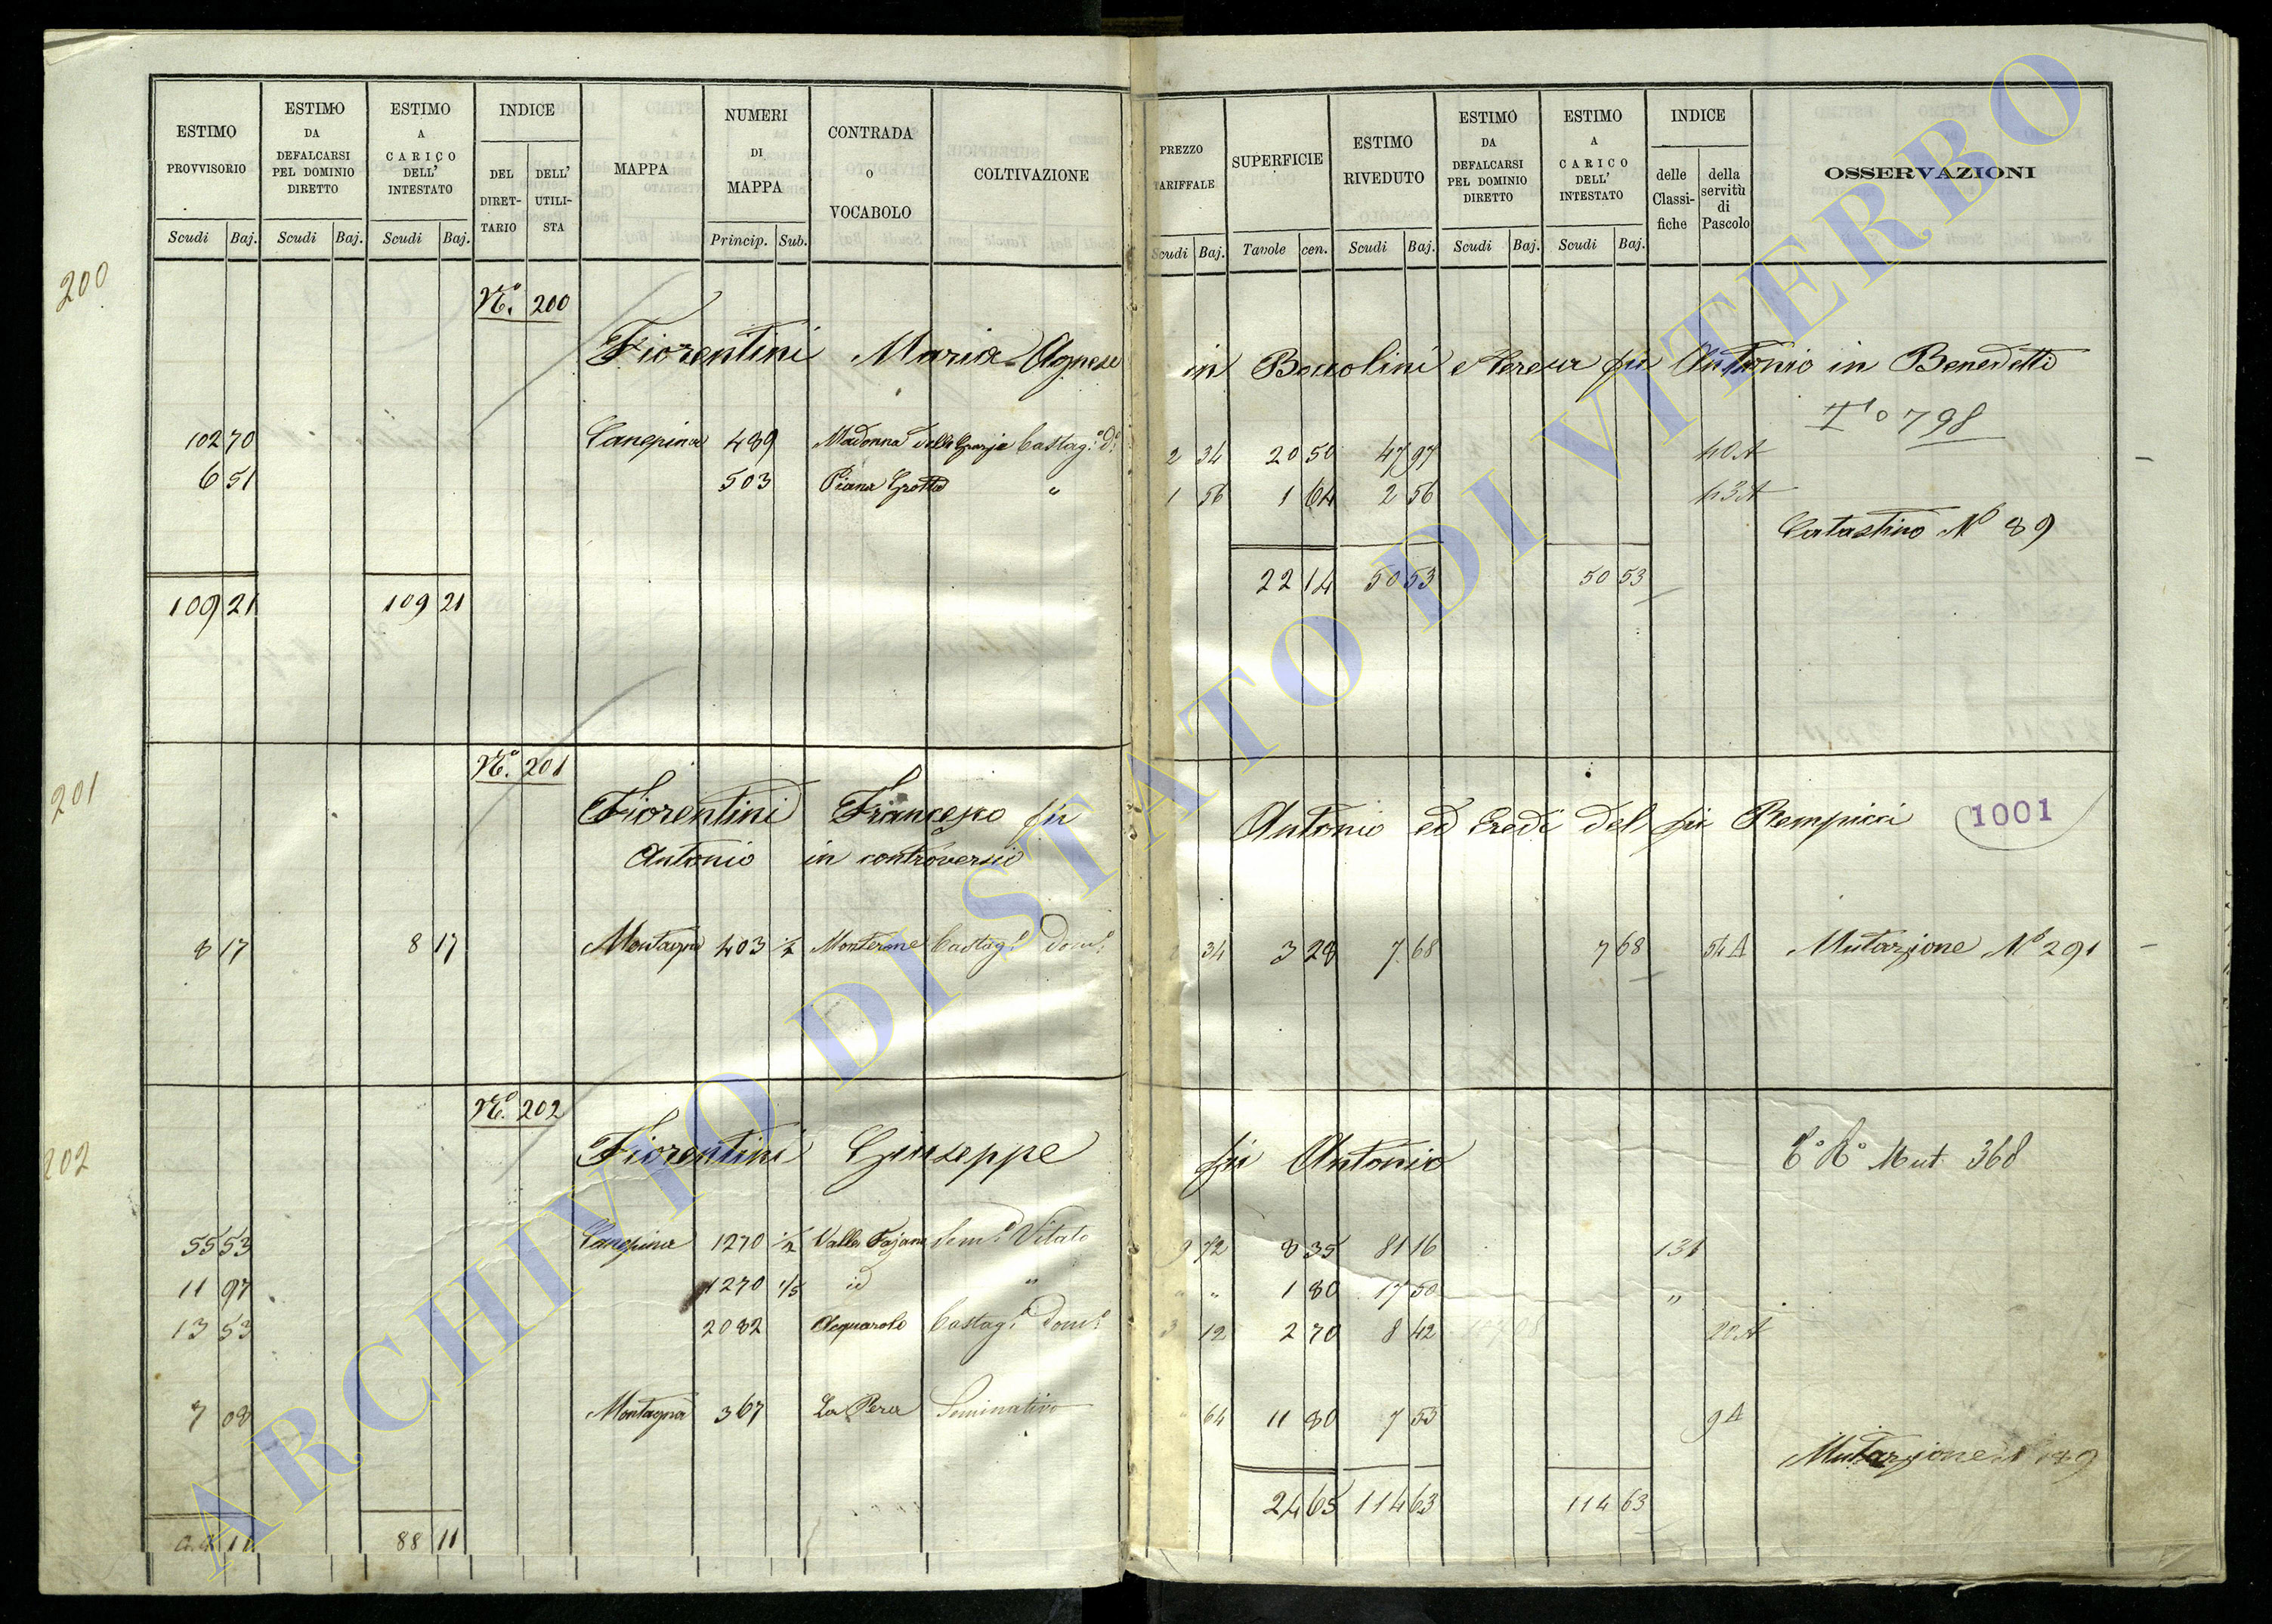 ESTIMO PROVVISORIO
ESTIMO DA DEFALCARSI PEL DOMINIO DIRETTO
ESTIMO A CARICO DELL' INTESTATO
INDICE
DEL DIRET- TARIO
DELL' UTILI- STA
MAPPA
NUMERI DI MAPPA
CONTRADA O VOCABOLO
COLTIVAZIONE
PREZZO TARIFFALE
SUPERFICIE
ESTIMO RIVEDUTO
ESTIMO DA DEFALCARSI PEL DOMINIO DIRETTO
ESTIMO A CARICO DELL' INTESTATO
INDICE
delle Classi- fiche
della servitù di Pascolo
OSSERVAZIONI
Scudi Baj. Scudi Baj. Scudi Baj. Princip. Sub.
Scudi Baj. Tavole cen. Scudi Baj. Scudi Baj. Scudi Baj.
200
N.º 200
Fiorentini Maria Agnese in Boccolini e Teresa fu Antonio in Benedetti
Tº 798
102 70 Canepina 489 Madonna delle Grazie Castag.º d.º 2 34 20 50 47 97 40A
6 51 503 Piana Grotta " 1 56 1 64 2 56 43A
Catastino Nº 89
22 14 50 53 50 53
109 21 109 21
201
N.º 201
Fiorentini Francesco fu Antonio ed Eredi del fu Pempicci 1001
Antonio in controversia
8 17 8 17 Montagna 403 ½ Monterone Castag.º dom.º 34 3 28 7 68 7 68 54A Mutazione Nº 291
202
N.º 202
Fiorentini Giuseppe fu Antonio Cº Rº Mut. 368
55 53 Canepina 1270 ½ Valle Fajana Sem.º Vitato 9 72 8 35 81 16 131
11 97 1270 1/5 id " " " 1 80 17 50 "
13 53 2082 Acquarolo Castag.º dom.º 3 12 2 70 8 42 20A
7 08 Montagna 367 La Pera Seminativo " 64 11 80 7 55 9A
Mutazione 189
24 65 114 63 114 63
88 11 88 11
ARCHIVIO DI STATO DI VITERBO